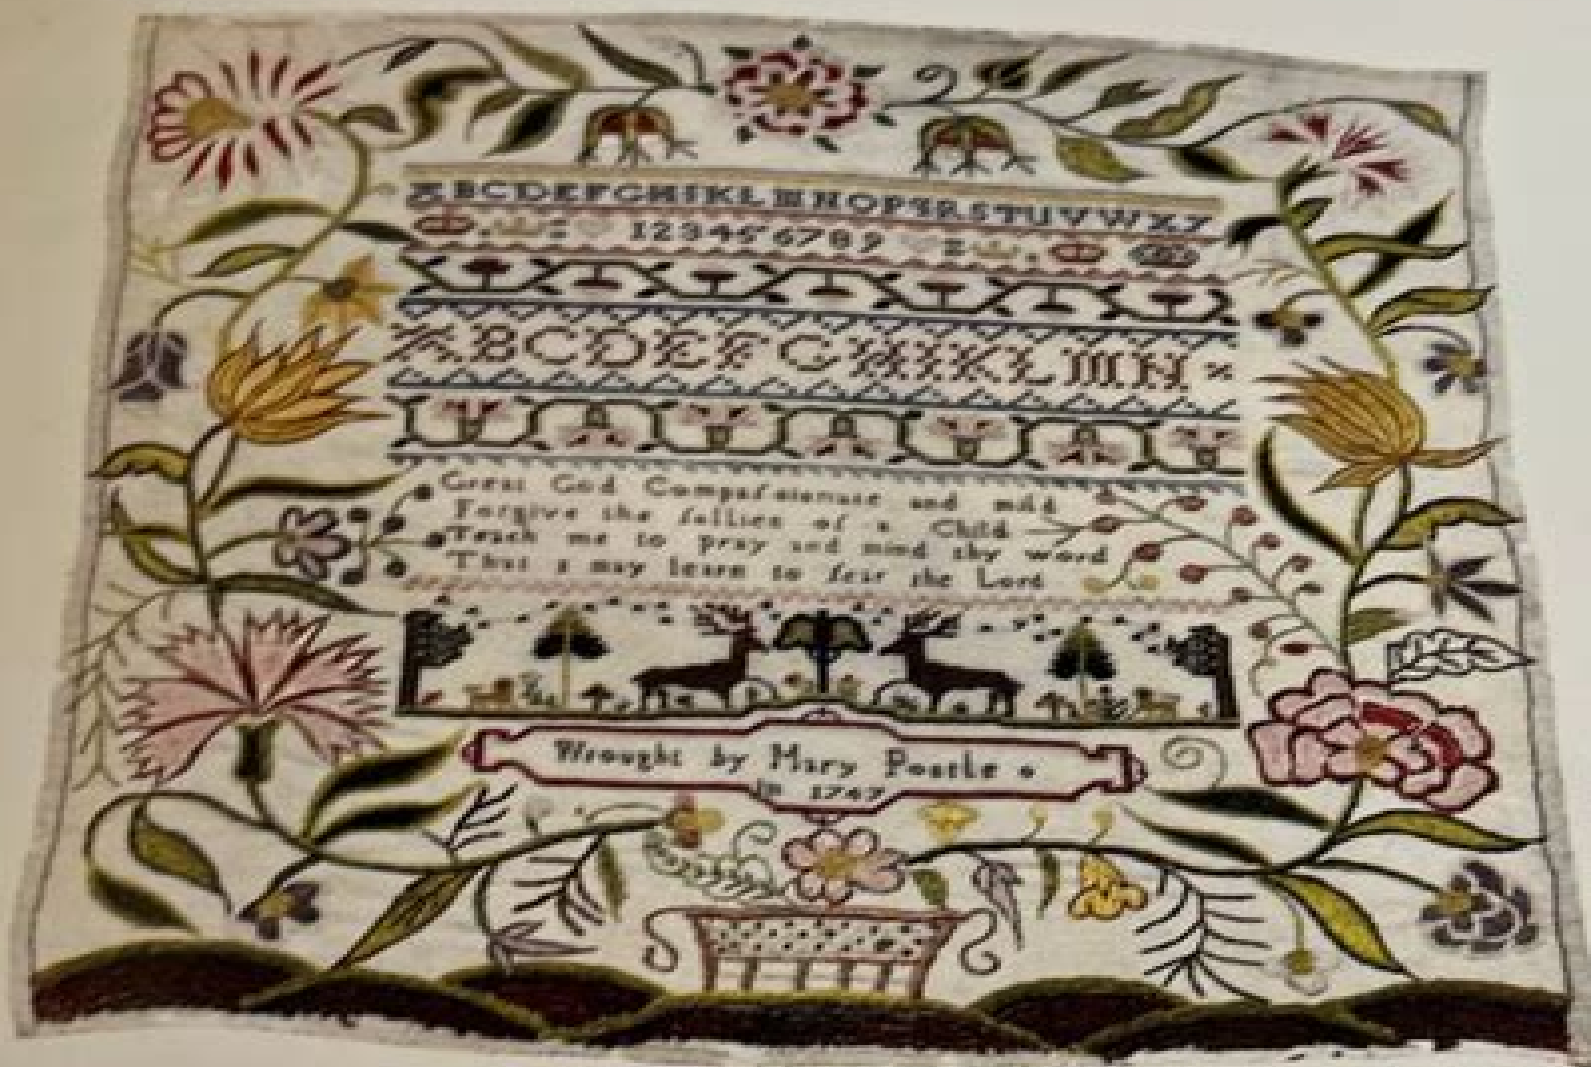 ABCDEFGHIKLMNOPQRSTUVWXY
123456789
ABCDEFGHIKLMN
Great God Compasionate and mild
Forgive the follies of a Child
Teach me to pray and mind thy word
That I may learn to fear the Lord
Wrought by Mary Postle
in 1747